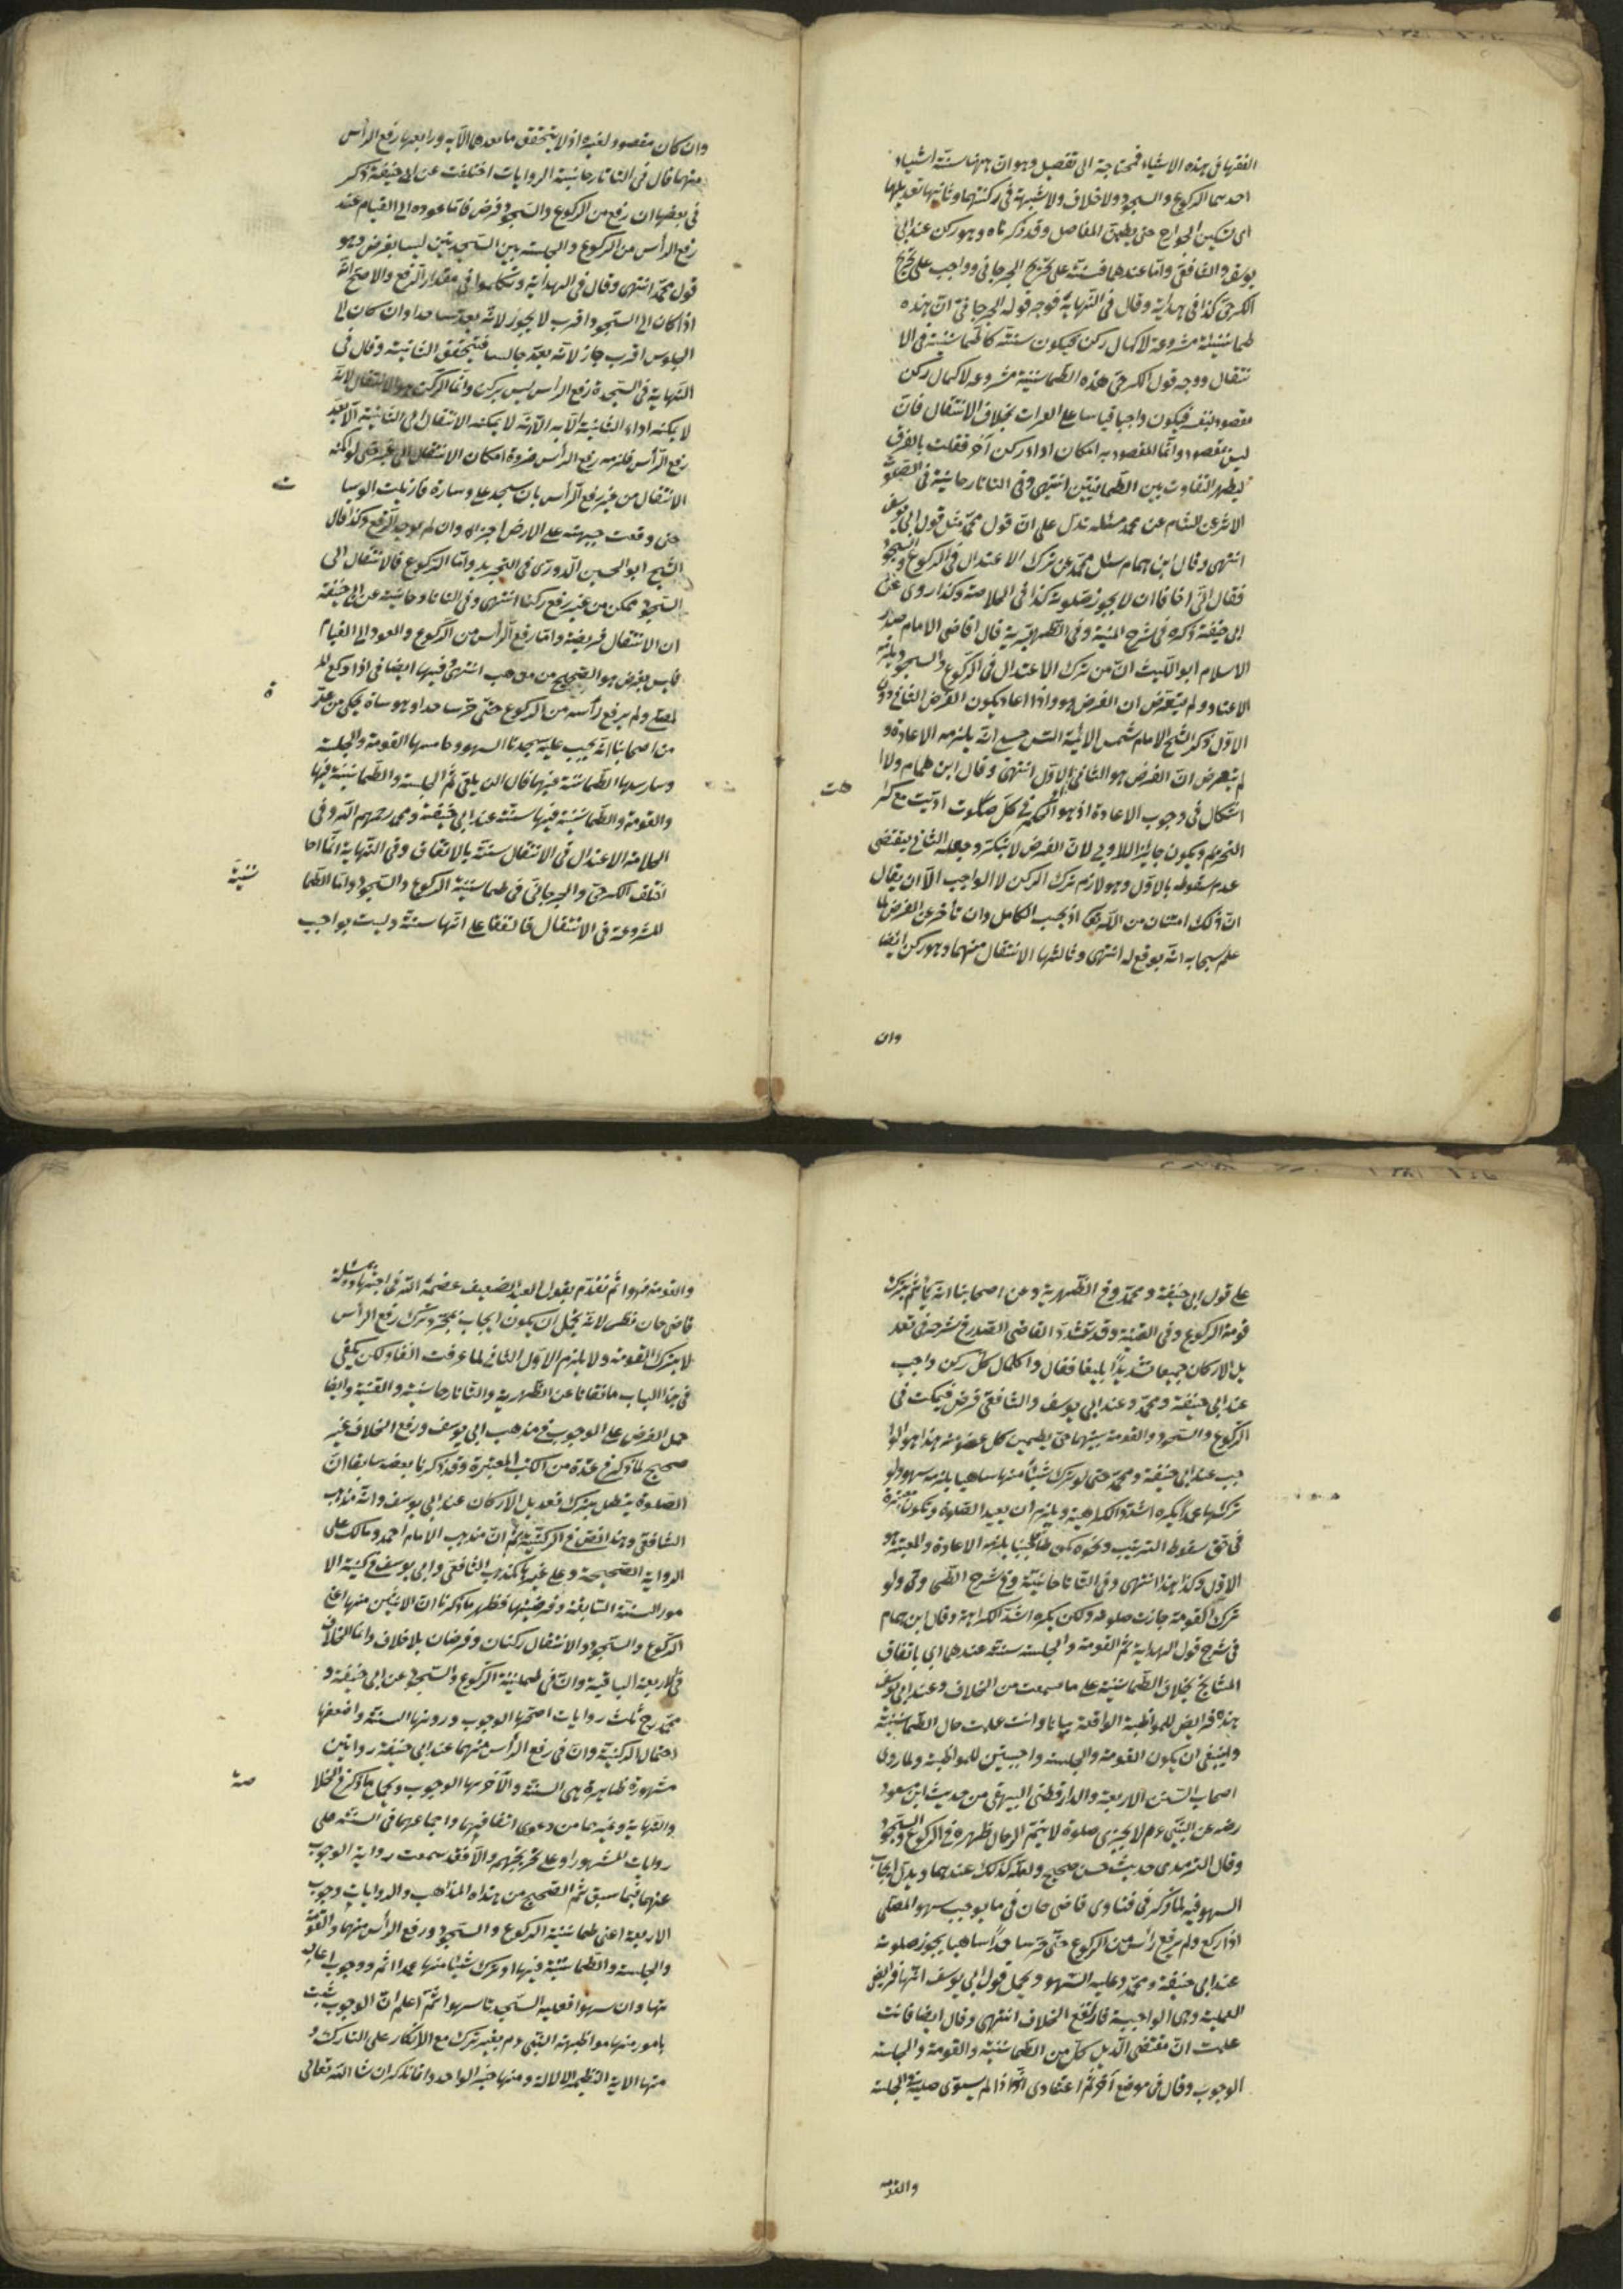 الفقهاء فى هذه الاشياء فمحتاجة الى تفصيل وهو ان ههنا ستة اشياء
احديهما الركوع والسجود ولا خلاف ولا شبهة فى ركنيتهما وثانيها تعديلهما
اى تسكين الجوارح حتى يطمئن المفاصل وقد ذكرناه وهو ركن عند ابى
يوسف والشافعى واما عندهما فسنة على تخريج الجرجانى وواجب على تخريج
الكرخى كذا فى هداية وقال فى النهاية فوجه قوله الجرجانى ان هذه
طمانينة مشروعة لاكمال ركن فيكون سنة كالطمانينة فى الا
نتقال ووجه قول الكرخى هذه الطمانينة مشروعه لاكمال ركن
مقصود بنفسه فيكون واجبا قياسا على القراءة بخلاف الانتقال فان
ليس بمقصود وانما المقصود به امكان اداء ركن آخر فقلت بالفرق
ليظهر التفاوت بين الطمانينتين انتهى وفى التاتارخانية فى الصلوة
الاثر عن هشام عن محمد مسئله تدل على ان قول محمد مثل قول ابى يوسف
انتهى وقال ابن همام سئل محمد عن ترك الاعتدال فى الركوع والسجود
فقال انى اخاف ان لا يجوز صلوته كذا فى الخلاصة وكذا روى عن
ابى حنيفة ذكره فى شرح المنية وفى الظهيرية قال القاضى الامام صدر
الاسلام ابو الليث ان من ترك الاعتدال فى الركوع والسجود يلزمه
الاعادة ولم يتعرض ان الفرض هو واذا اعاد يكون الفرض الثانى دون
الاول ذكر الشيخ الامام شمس الائمة السرخسى انه يلزمه الاعادة و
لم يتعرض ان الفرض هو الثانى او الاول انتهى وقال ابن همام ولا
اشكال فى وجوب الاعادة اذ هو الحكم فى كل صلوت اديت مع كراهة
التحريم ويكون جابرا للاول لان الفرض لا يتكرر وجعله الثانى يقتضى
عدم سقوطه بالاول وهو لازم ترك الركن لا الواجب الا ان يقال
ان ذلك امتنان من الله تعالى اذ يحسب الكامل وان تأخر عن الفرض لما
علم سبحانه انه يوقع له انتهى وثالثها الانتقال منهما وهو ركن ايضا
وان
وان كان مقصود لغيره اذ لا يتحقق ما بعدهما الا به ورابعها رفع الرأس
منهما قال فى التاتارخانية الروايات اختلفت عن ابى حنيفة ذكر
فى بعضها ان رفع من الركوع والسجود فرض فاما عوده الى القيام عند
رفع الرأس من الركوع والجلسة بين السجدتين ليسا بفرض وهو
قول محمد انتهى وقال فى الهداية وتكلموا فى مقدار الرفع والاصح انه
اذا كان الى السجود اقرب لا يجوز لانه يعد ساجدا وان كان الى
الجلوس اقرب جاز لانه يعد جالسا فيتحقق الثانية وقال فى
النهاية فى السجدة رفع الرأس ليس بركن وانما الركن هو الانتقال لانه
لا يمكنه اداء الثانية الا به الا انه لا يمكنه الانتقال الى الثانية الا بعد
رفع الرأس فلزمه رفع الرأس ضرورة امكان الانتقال الى غيره حتى لو امكنه
الانتقال من غير رفع الرأس بان سجد على وسادة فازيلت الوسا
حتى وقعت جبهته على الارض اجزأه وان لم يوجد الرفع وكذا قال
الشيخ ابو الحسين القدورى فى التجريد واما الركوع فالانتقال الى
السجود ممكن من غير رفع ركنا انتهى وفى التاتارخانية عن ابى حنيفة
ان الانتقال فريضة واما رفع الرأس من الركوع والعود الى القيام
فليس بفرض هو الصحيح من مذهب انتهى وفيها ايضا فى اذا ركع للا
لمصلى ولم يرفع رأسه من الركوع حتى خر ساجدا وهو ساه يحكى من عند
من اصحابنا انه يجب عليه سجدتا السهو وخامسها القومة والجلسة
وسادسها الطمانينة فيهما قال الزيلعى ثم الجلسة والطمانينة فيها
والقومة والطمانينة فيها سنة عند ابى حنيفة ومحمد رحمهم الله وفى
الخلاصة الاعتدال فى الانتقال سنة بالاتفاق وفى النهاية انما اخا
اختلف الكرخى والجرجانى فى طمانينة الركوع والسجود واما الطما
المشروعة فى الانتقال فاتفقا على انها سنة وليست بواجب
ت
ة
نينة
على قول ابى حنيفة ومحمد وفى الظهيرية وعن اصحابنا انه يأثم بترك
قومة الركوع وفى القنية وقد شدد القاضى الصدر فى شرحه فى تعد
يل الاركان جميعا تشديدا بليغا فقال واكمال كل ركن واجب
عند ابى حنيفة ومحمد وعند ابى يوسف والشافعى فرض فيمكث فى
الركوع والسجود والقومة بينهما حتى يطمئن كل عضو منه هذا هو الوا
جب عند ابى حنيفة ومحمد حتى لو ترك شيئا منها ساهيا يلزمه سهو ولو
تركها عمدا يكره اشد الكراهية ويلزم ان يعيد الصلوة وتكون معتبرة
فى حق سقوط الترتيب ونحوه كمن طاف جنبا يلزمه الاعادة والمعتبر هو
الاول وكذا هذا انتهى وفى التاتارخانية وفى شرح الطحاوى ولو
ترك القومة جازت صلوته ولكن يكره اشد الكراهة وقال ابن همام
فى شرح قول الهداية ثم القومة والجلسة سنة عندهما اى باتفاق
المشايخ بخلاف الطمانينة على ما سمعت من الخلاف وعند ابى يوسف
هذه فرايض للمواظبة الواقعة بيانا وانت علمت حال الطمانينة
وينبغى ان يكون القومة والجلسة واجبتين للمواظبة ولما روى
اصحاب السنن الاربعة والدارقطنى البيهقى من حديث ابن مسعود
رضه عن النبى ءم لا يجزى صلوة لا يقيم الرجل ظهره فى الركوع والسجود
وقال الترمدى حديث حسن صحيح ولعله كذلك عندهما ويدل ايجاب
السهو فيه لما ذكر فى فتاوى قاضى خان فى ما يوجب سهو المصلى
اذا ركع ولم يرفع رأسه من الركوع حتى خر ساجدا ساهيا يجوز صلوته
عند ابى حنيفة ومحمد وعليه السهو ويحمل قول ابى يوسف انها فرايض
العملية وهى الواجبة فارتفع الخلاف انتهى وقال ايضا فانت
علمت ان مقتضى الدليل كل من الطمانينة والقومة والجلسة
الوجوب وقال فى موضع آخر ثم اعتقادى انه اذا لم يستوى صلبه فى الجلسة
والقومة
والقومة فهو اثم تقدم يقول العبد الضعيف عصمه الله فى اجتهاده بمسئلة
قاضى خان نظر لانه يحتمل ان يكون ايجاب بمجرد ترك رفع الرأس
لا بترك القومة ولا يلزم الاول الثانى لما عرفت انفا ولكن يكفى
فى هذا الباب ما نقلنا عن الظهيرية والتاتارخانية والقنية وايضا
حمل الفرض على الوجوب فى مذهب ابى يوسف ورفع الخلاف غير
صحيح لما ذكر فى عدة من الكتب المعتبرة وقد ذكرنا بعضه سابقا ان
الصلوة يبطل بترك تعديل الاركان عند ابى يوسف وانه مذهب
الشافعى وهذا نص فى الركنية ثم ان مذهب الامام احمد ومالك على
الرواية الصحيحة وعلى غيرها كمذهب الشافعى وابى يوسف فى ركنية الا
مور الستة السابقة وفرضيتها فظهر ما ذكرنا ان الاثنين منها اعنى
الركوع والسجود والانتقال ركنان وفرضان بلا خلاف وانما الخلاف
فى الاربعة الباقية وان فى طمانينة الركوع والسجود عن ابى حنيفة و
محمد رح ثلث روايات اصحها الوجوب ودونها السنة واضعفها
احتمال الركنية وان فى رفع الرأس منهما عند ابى حنيفة روايتين
مشهورة ظاهرة هى السنة والآخر بها الوجوب ويحمل ما ذكر فى الخلا
والنهاية وغيرهما من دعوى اتفاقيها واجماعهما فى السنة على
روايات المشهور او على تخريجهم والا فقد سمعت رواية الوجوب
عنهما فيما سبق ثم الصحيح من هذه المذاهب والروايات وجوب
الاربعة اعنى طمانينة الركوع والسجود ورفع الرأس منهما والقومة
والجلسة والطمانينة فيهما او ترك شيئا منها عمدا اثم ووجوب اعاد
تها وان سهوا فعليه السجدتا سهوا ثم اعلم ان الوجوب يثبت
بامور منها مواظبة النبى ءم بغير ترك مع الانكار على التارك و
منها الاية القطعية الدلالة ومنها خبر الواحد وانا نذكر ان شا الله تعالى
صة